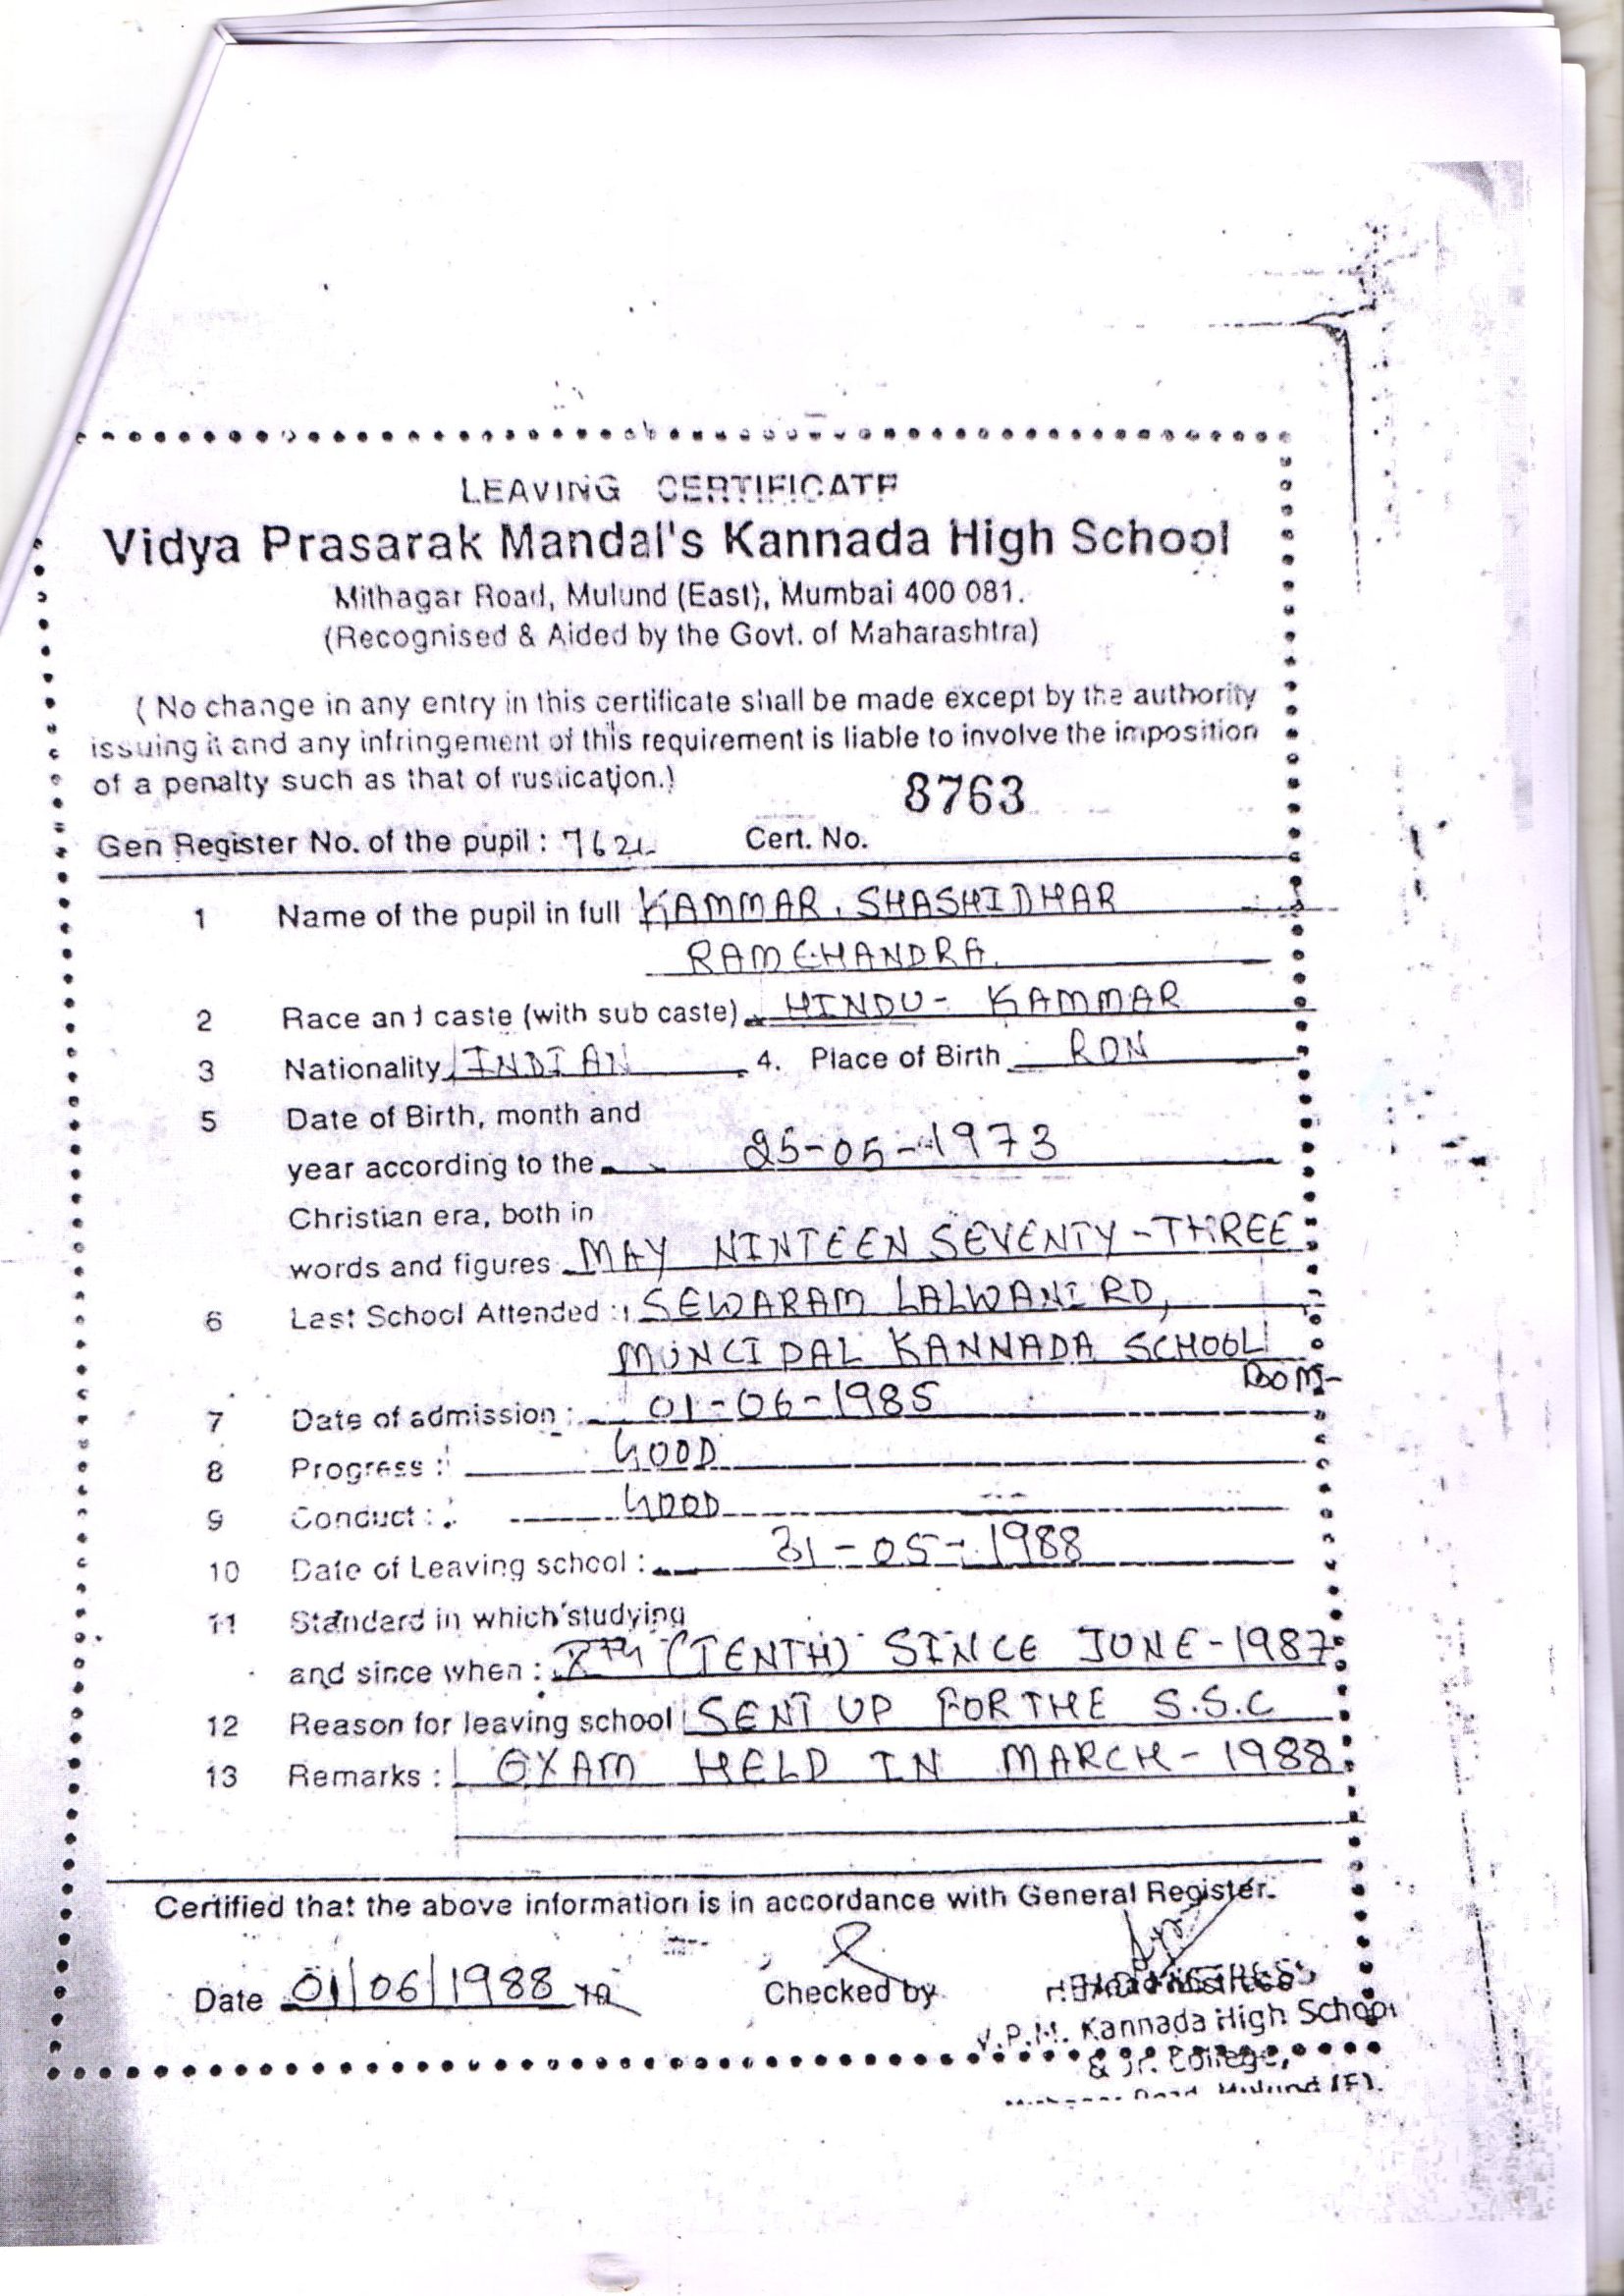 LEAVING CERTIFICATE
Vidya Prasarak Mandal's Kannada High School
Mithagar Road, Mulund (East), Mumbai 400 081.
(Recognised & Aided by the Govt. of Maharashtra)
( No change in any entry in this certificate shall be made except by the authority
issuing it and any infringement of this requirement is liable to involve the imposition
of a penalty such as that of rustication.)
8763
Gen Register No. of the pupil : Cert. No.
1 Name of the pupil in full KAMMAR. SHASHIDHAR
RAMCHANDRA.
2 Race and caste (with sub caste) HINDU - KAMMAR
3 Nationality INDIAN 4. Place of Birth RON
5 Date of Birth, month and
year according to the 25-05-1973
Christian era, both in
words and figures MAY NINTEEN SEVENTY-THREE
6 Last School Attended : SEWARAM LALWANI RD,
MUNCIPAL KANNADA SCHOOL
BOM-
7 Date of admission : 01-06-1985
8 Progress : GOOD
9 Conduct : GOOD
10 Date of Leaving school : 31-05-1988
11 Standard in which studying
and since when : Xth (TENTH) SINCE JUNE-1987
12 Reason for leaving school SENT UP FOR THE S.S.C
13 Remarks : EXAM HELD IN MARCH-1988
Certified that the above information is in accordance with General Register.
Date 01/06/1988 Checked by
V.P.M. Kannada High School
& Jr. College,
Road, Mulund (E).